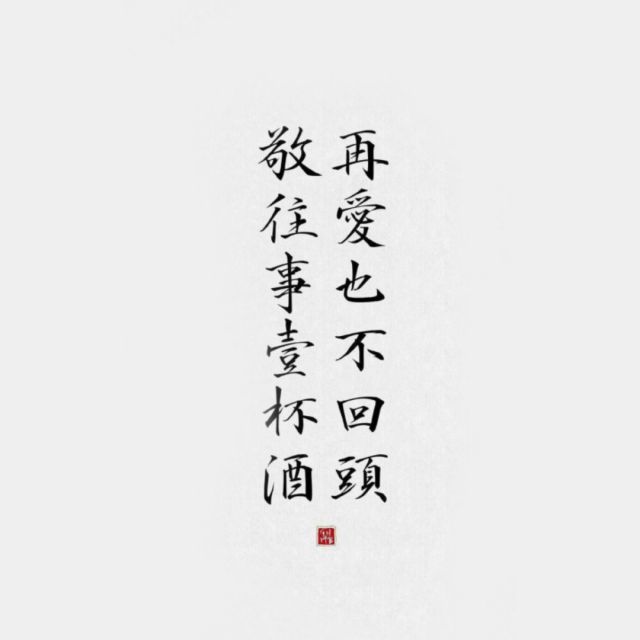 再愛也不回頭
敬往事壹杯酒